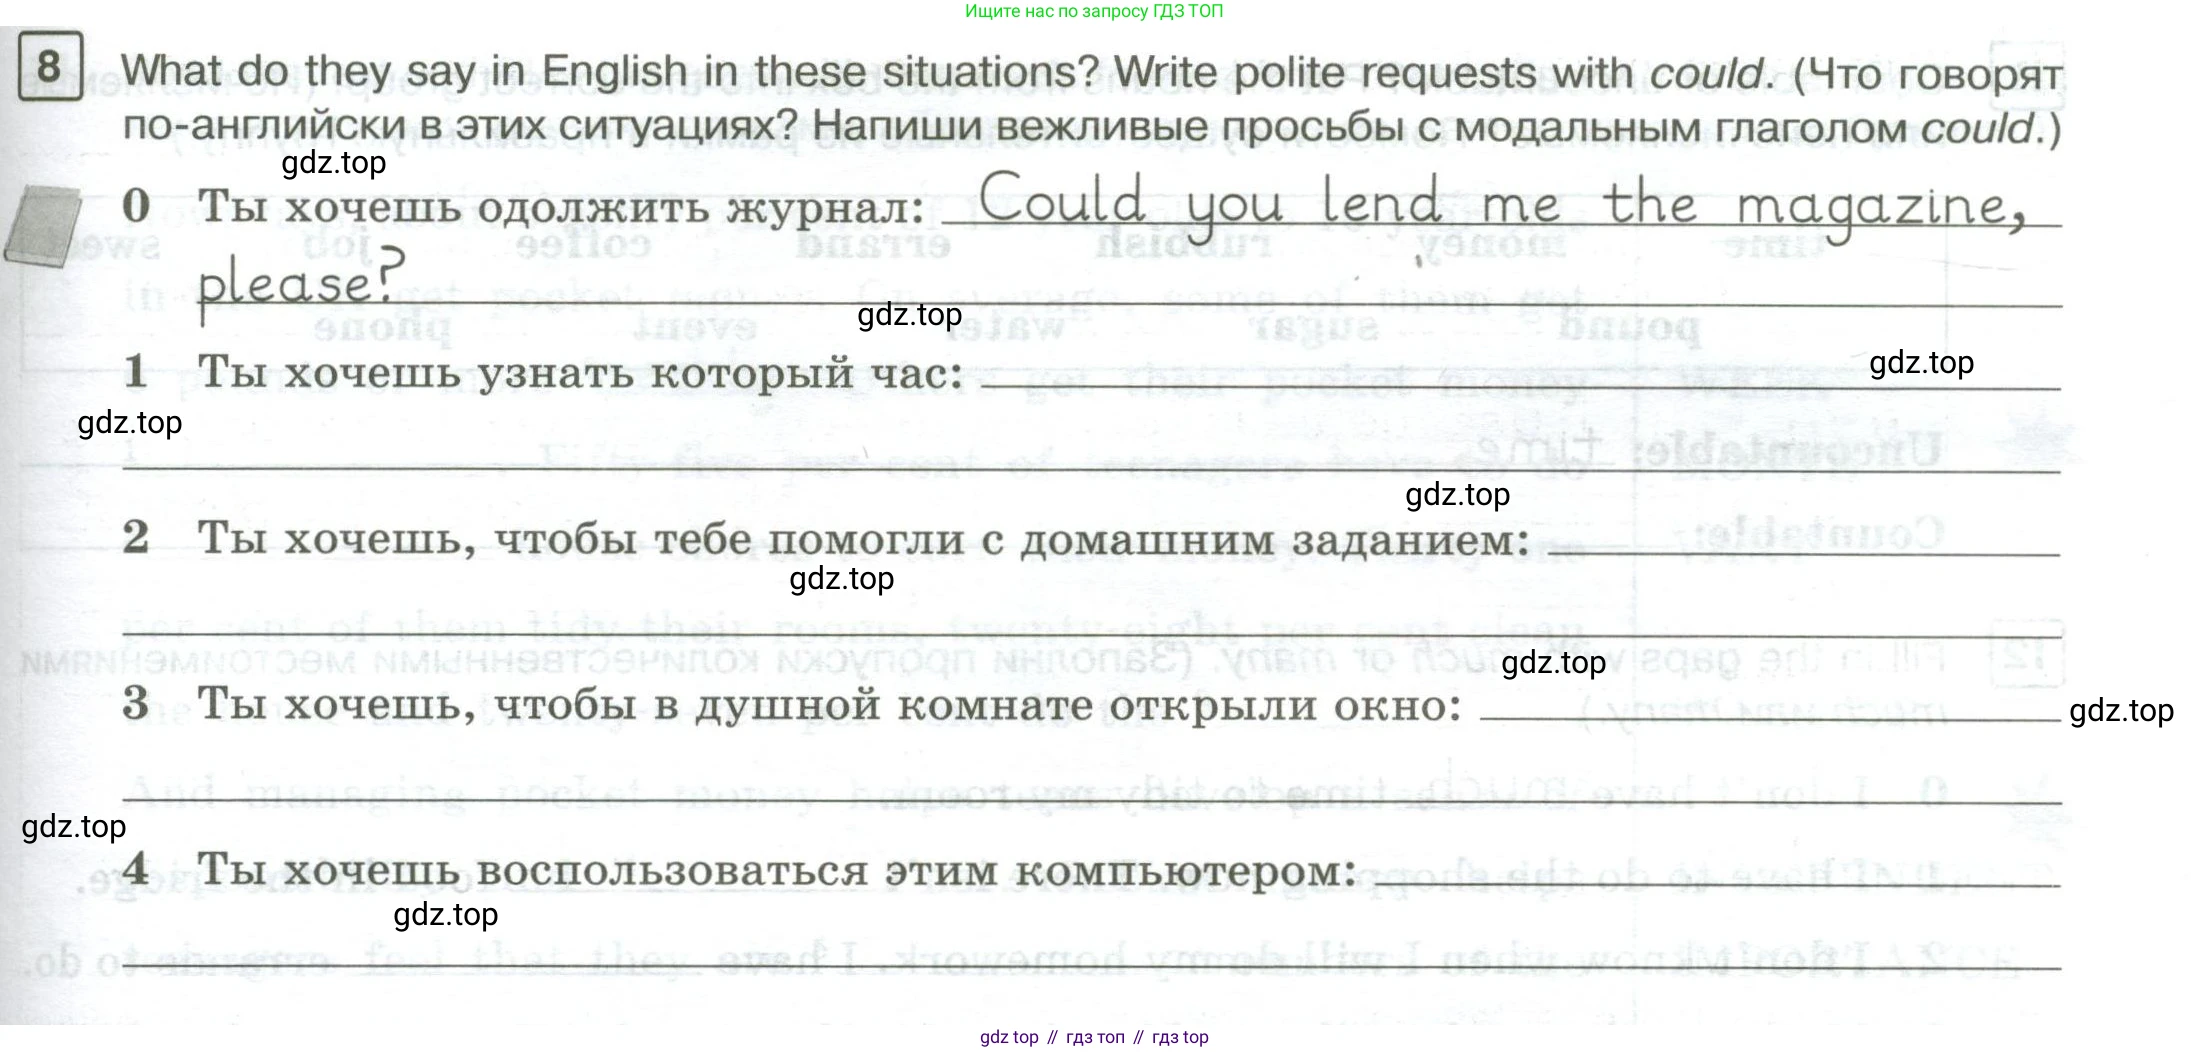 Ищите нас по запросу ГДЗ ТОП
8 What do they say in English in these situations? Write polite requests with could. (Что говорят
по-английски в этих ситуациях? Напиши вежливые просьбы с модальным глаголом could.)
gdz.top
0 Ты хочешь одолжить журнал: Could you lend me the magazine,
please?
gdz.top
1 Ты хочешь узнать который час:
gdz.top
gdz.top
gdz.top
2 Ты хочешь, чтобы тебе помогли с домашним заданием:
gdz.top
gdz.top
3 Ты хочешь, чтобы в душной комнате открыли окно:
gdz.top
gdz.top
4 Ты хочешь воспользоваться этим компьютером:
gdz.top
gdz.top // гдз топ // гдз top